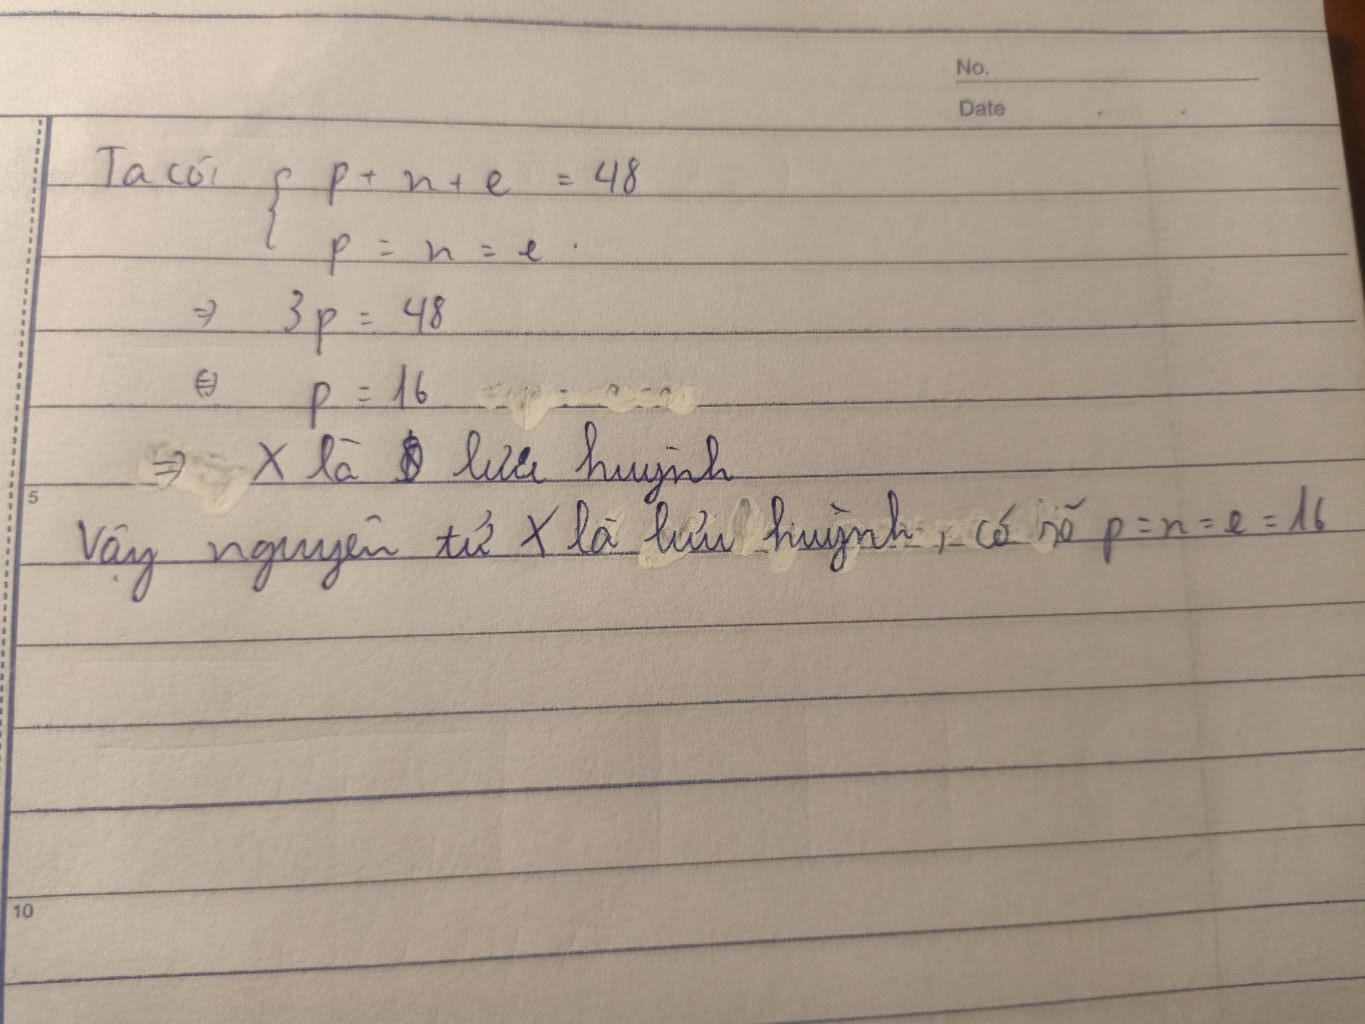 No.
Date
Ta có: { p + n + e = 48
p = n = e.
⇒ 3p = 48
⇔ p = 16
⇒ X là lưu huỳnh
5
Vậy nguyên tử X là lưu huỳnh, có số p = n = e = 16
10